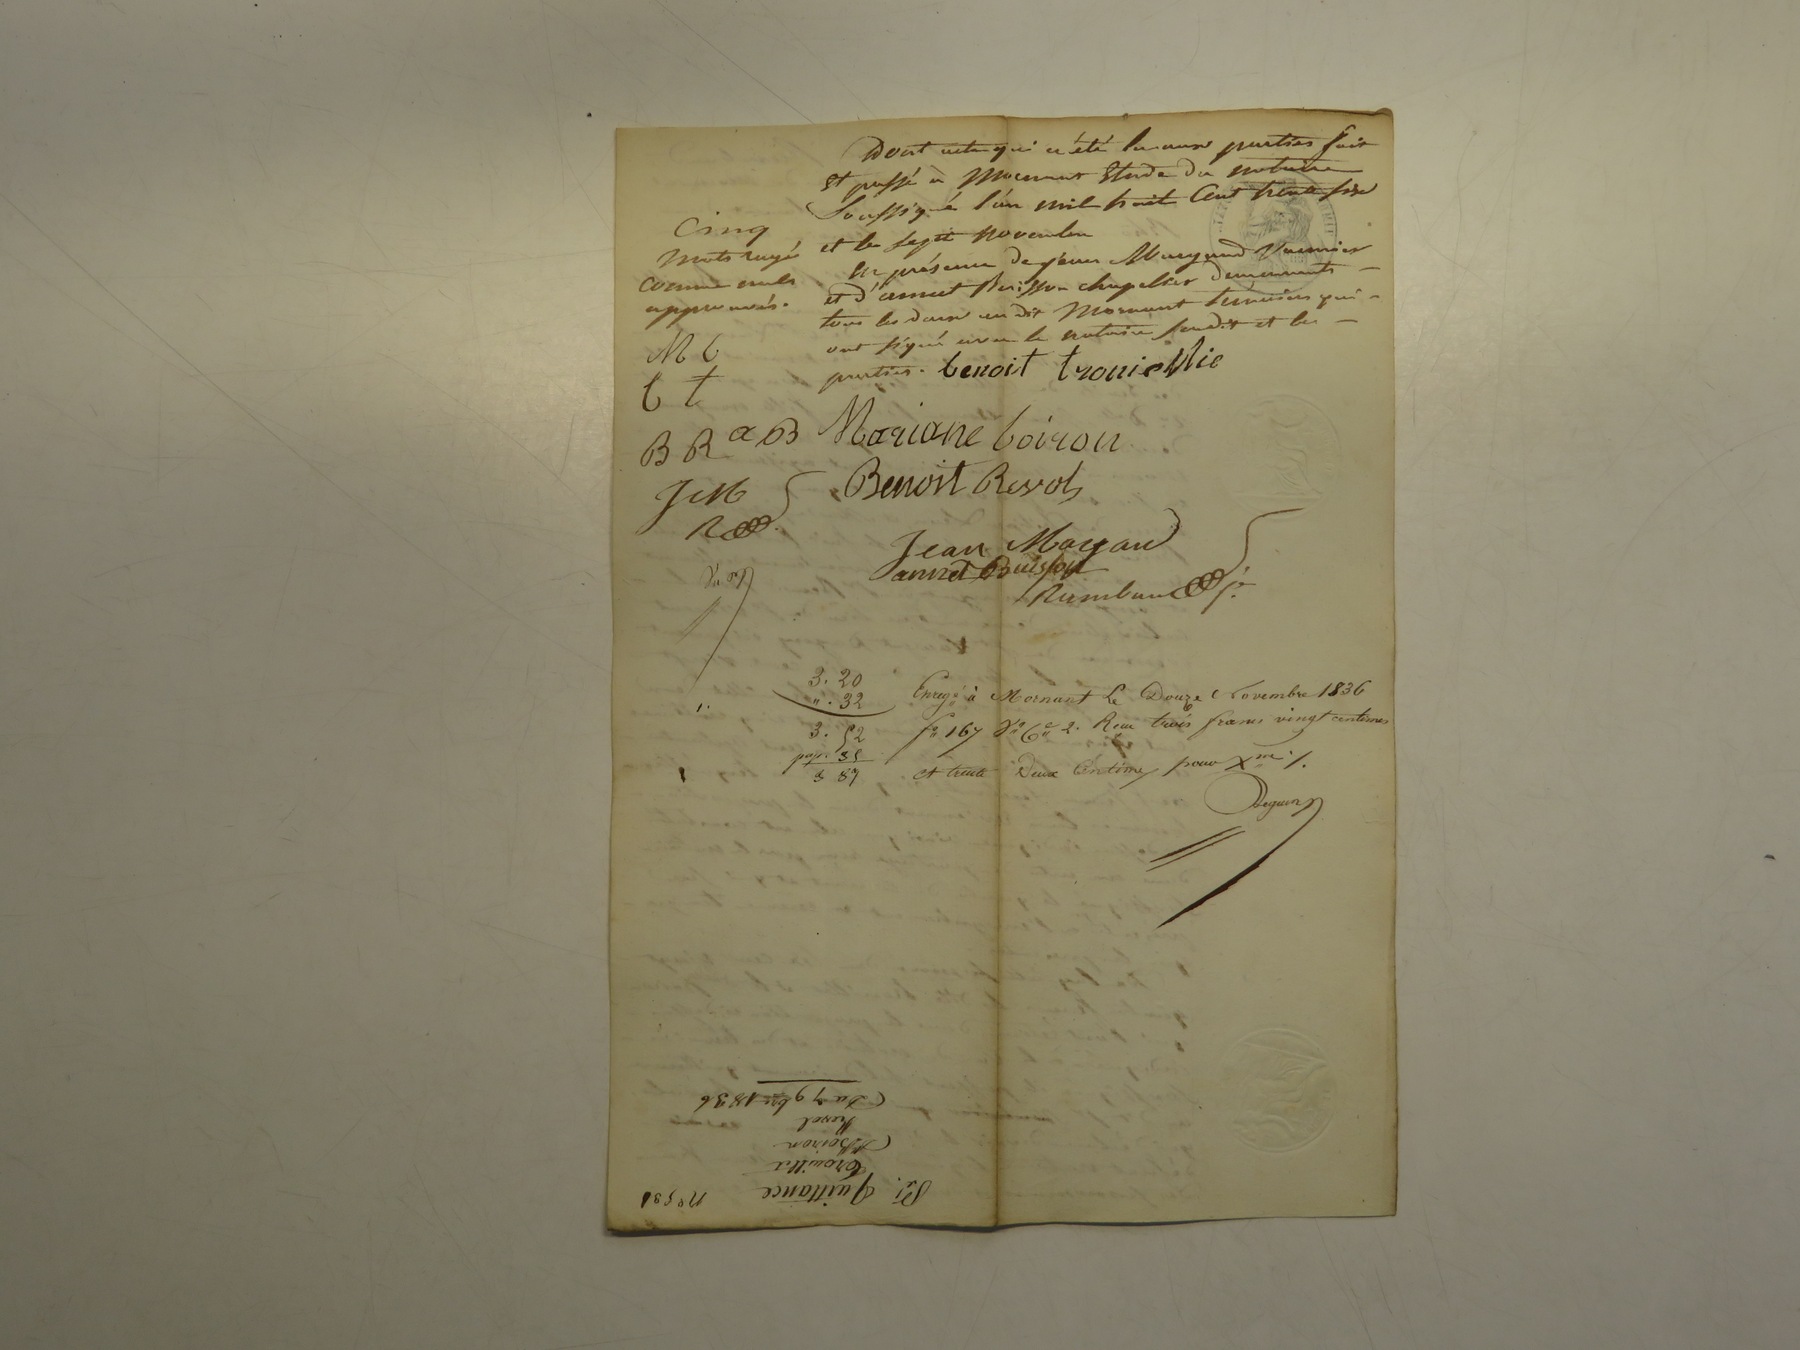 Dont acte qui a été lu aux parties fait
et passé à Mornant Etude du notaire
Soussigné l'an mil huit Cent trente six
et le sept novembre
En présence de Jean Margand
et d'annet Buisson chapelier demeurants
tous les deux au dit Mornant témoins qui
ont signé avec le notaire susdit et les
parties. benoit trouiellie
Cinq
mots rayé
comme nuls
approuvés.
M b
b t
B R a B
J M
R
Mariane boiron
Benoit Revol
Jean Margand
annet Buisson
3. 20
". 32
3. 52
35
3 87
Enregé à Mornant Le Douze Novembre 1836
fo 167 Vo Ce 2. Reçu trois francs vingt centimes
et trente Deux Centimes pour Xme
Du 7 9bre 1836
Revol
Boiron
Trouillie
Quittance